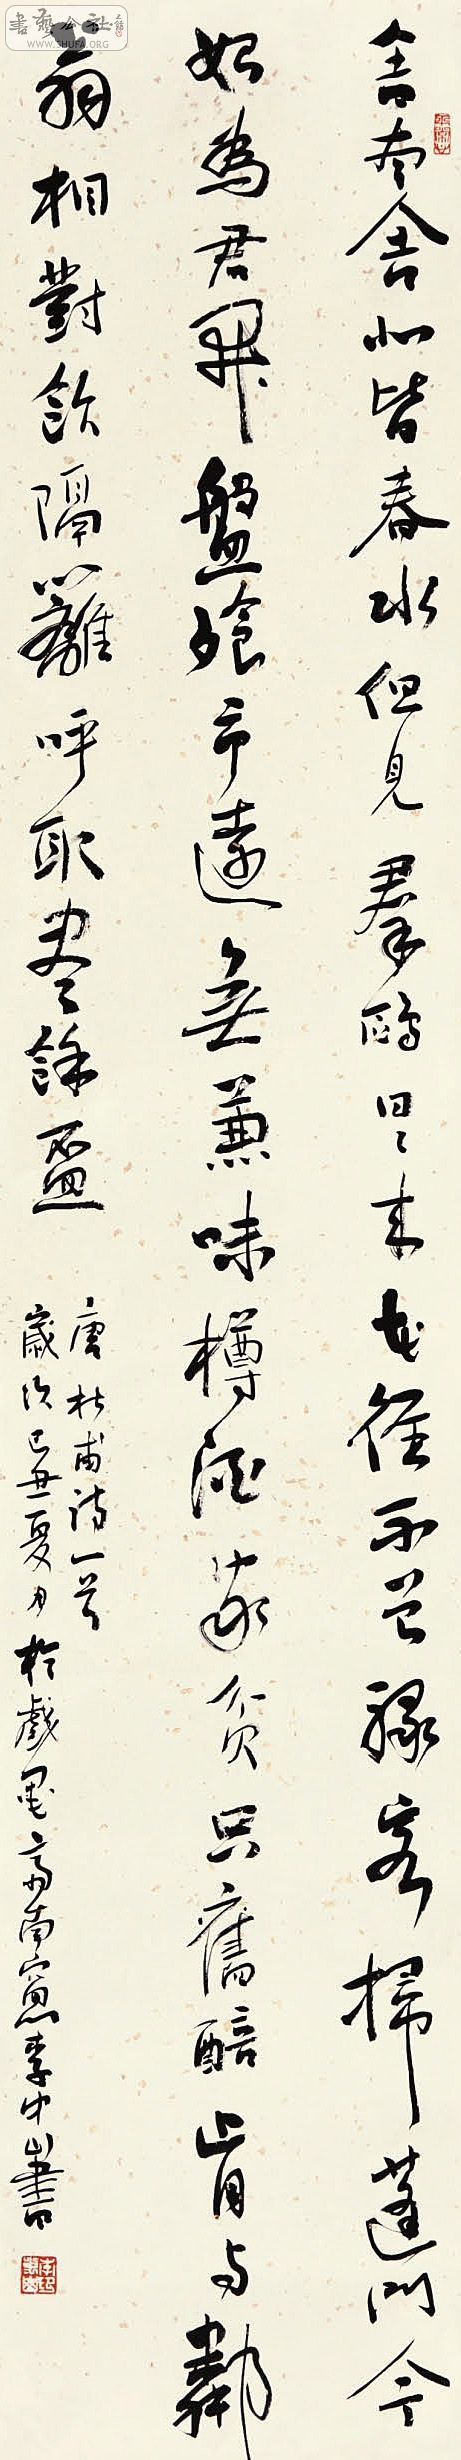 舍南舍北皆春水但見羣鷗日日来花徑不曾緣客掃蓬門今
始為君開盤飧市遠無蒹味樽酒家貧只舊醅肯与鄰
翁相對飲隔籬呼取尽餘盃
唐杜甫詩一首
歲次己丑夏月於戲墨斋南窗李中書
書藝公社
WWW.SHUFA.ORG